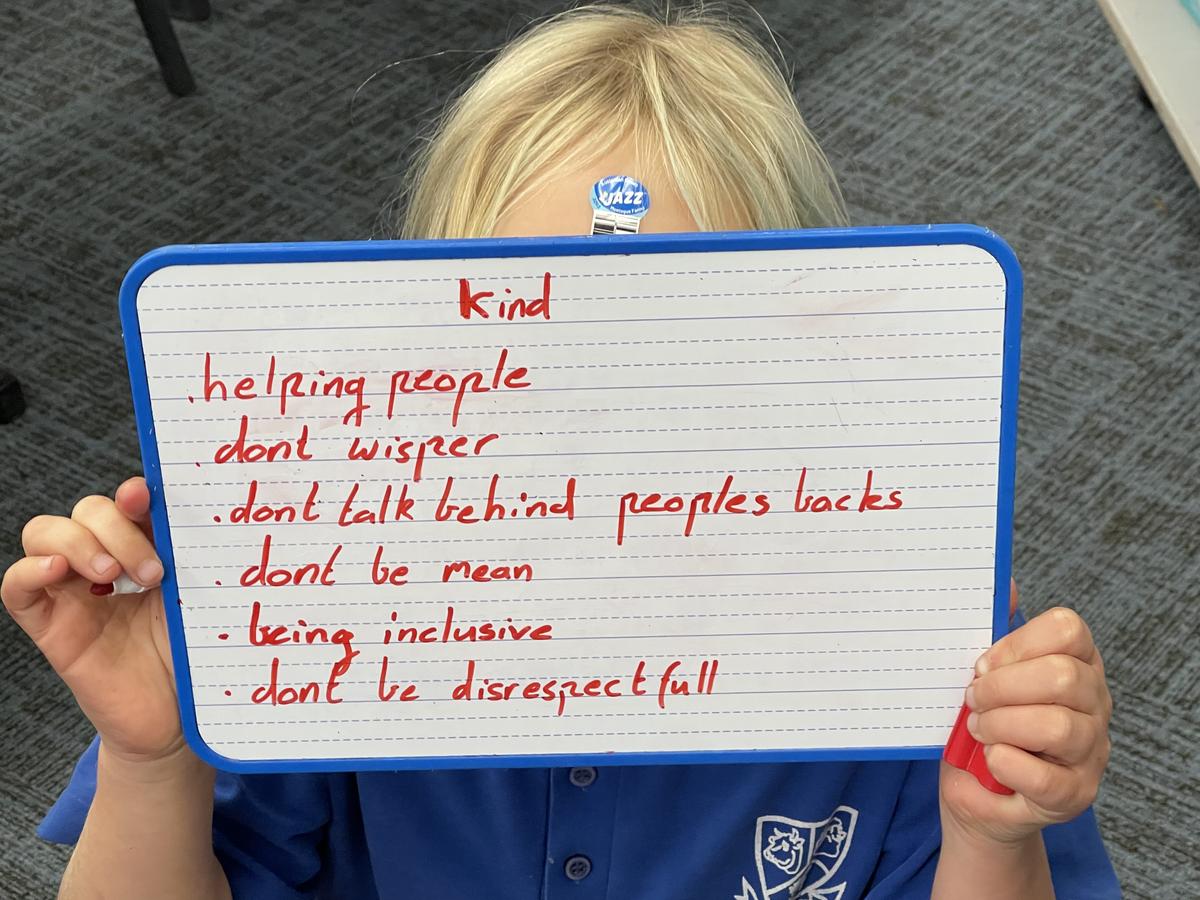 JAZZ
Kind
.helping people
.dont wisper
.dont talk behind peoples backs
.dont be mean
.being inclusive
.dont be disrespectfull